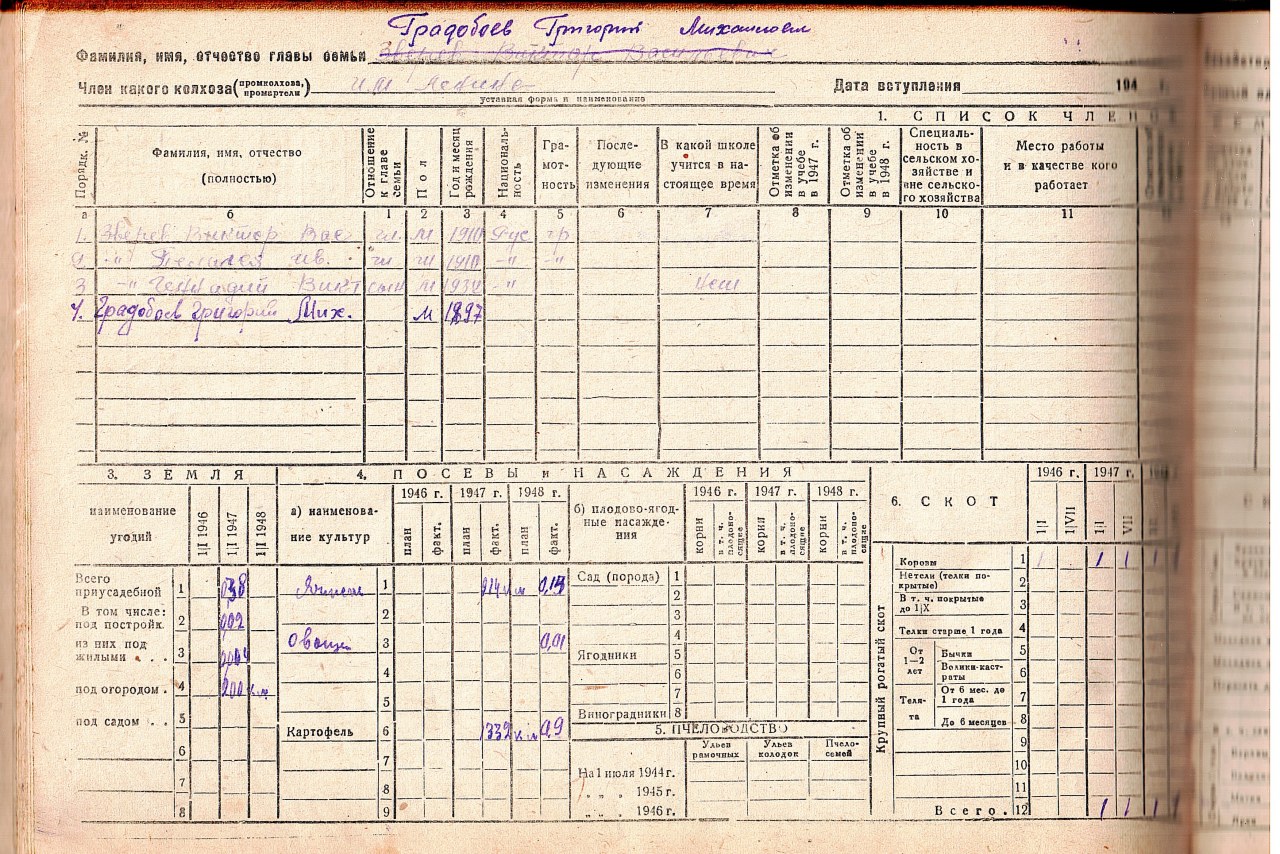 Градобоев Григорий Михайлови
Фамилия, имя, отчество главы семьи Зверев Виктор Васильевич
Член какого колхоза (промколхоза, промартели) им Ленина Дата вступления 194 г.
уставная форма и наименование
1. СПИСОК ЧЛЕН
Порядк. № Фамилия, имя, отчество (полностью) Отношение к главе семьи Пол Год и месяц рождения Национальность Грамотность Последующие изменения В какой школе учится в настоящее время Отметка об изменении в учебе в 1947 г. Отметка об изменении в учебе в 1948 г. Специальность в сельском хозяйстве и вне сельского хозяйства Место работы и в качестве кого работает
а б 1 2 3 4 5 6 7 8 9 10 11
1. Зверев Виктор Вас гл. м 1910 Рус гр
2 -"- Ив. 1910 -"- -"-
3 -"- Геннадий Викт сын м -"-
4. Градобоев Григорий Мих. м 1897
3. ЗЕМЛЯ 4. ПОСЕВЫ и НАСАЖДЕНИЯ 6. СКОТ
1946 г. 1947 г.
1|I 1|VII 1|I VII
наименование угодий 1|I 1946 1|I 1947 1|I 1948
а) наименование культур 1946 г. 1947 г. 1948 г.
план факт. план факт. план факт.
б) плодово-ягодные насаждения 1946 г. 1947 г. 1948 г.
корни в т. ч. плодоносящие корни в т. ч. плодоносящие корни в т. ч. плодоносящие
Всего приусадебной 1 0,38
В том числе: под постройк. 2 002
из них под жилыми . . . 3
под огородом . 4 200 к м
под садом . . 5
6
7
8
Ячмень 1 0,14
2
Овощи 3 0,01
4
5
Картофель 6 1332 к м 0,9
7
8
9
Сад (порода) 1
2
3
4
Ягодники 5
6
7
Виноградники 8
5. ПЧЕЛОВОДСТВО
Ульев рамочных Ульев колодок Пчелосемей
На 1 июля 1944 г.
" " " 1945 г.
" " " 1946 г.
Крупный рогатый скот
Коровы 1 1 1 1
Нетели (телки покрытые) 2
В т. ч. покрытые до 1|X 3
Телки старше 1 года 4
От 1—2 лет Бычки 5
Волики-кастраты 6
Телята От 6 мес. до 1 года 7
До 6 месяцев 8
9
10
11
Всего. 12 1 1